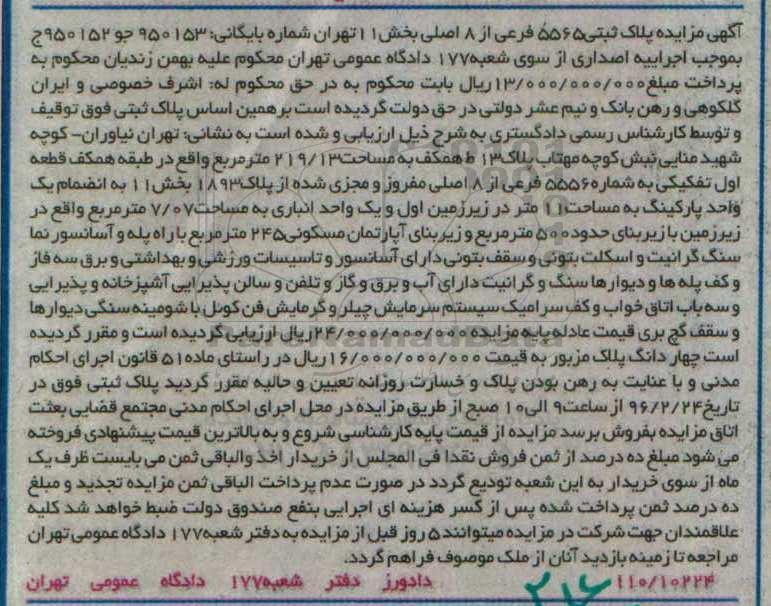 آگهی مزایده پلاک ثبتی۵۵۶۵ فرعی از ۸ اصلی بخش۱۱تهران شماره بایگانی: ۹۵۰۱۵۳ جو ۹۵۰۱۵۲ج
بموجب اجراییه اصداری از سوی شعبه۱۷۷ دادگاه عمومی تهران محکوم علیه بهمن زندیان محکوم به
پرداخت مبلغ۱۳/۰۰۰/۰۰۰/۰۰۰ریال بابت محکوم به در حق محکوم له: اشرف خصوصی و ایران
گلکوهی و رهن بانک و نیم عشر دولتی در حق دولت گردیده است برهمین اساس پلاک ثبتی فوق توقیف
و توسط کارشناس رسمی دادگستری به شرح ذیل ارزیابی و شده است به نشانی: تهران نیاوران- کوچه
شهید منایی نبش کوچه مهتاب پلاک۱۳ ط همکف به مساحت۲۱۹/۱۳ مترمربع واقع در طبقه همکف قطعه
اول تفکیکی به شماره۵۵۵۶ فرعی از ۸ اصلی مفروز و مجزی شده از پلاک۱۸۹۳ بخش۱۱ به انضمام یک
واحد پارکینگ به مساحت۱۱ متر در زیرزمین اول و یک واحد انباری به مساحت۷/۰۷ مترمربع واقع در
زیرزمین با زیربنای حدود۵۰۰ مترمربع و زیربنای آپارتمان مسکونی۲۴۵ مترمربع با راه پله و آسانسور نما
سنگ گرانیت و اسکلت بتونی و سقف بتونی دارای آسانسور و تاسیسات ورزشی و بهداشتی و برق سه فاز
و کف پله ها و دیوارها سنگ و گرانیت دارای آب و برق و گاز و تلفن و سالن پذیرایی آشپزخانه و پذیرایی
و سه باب اتاق خواب و کف سرامیک سیستم سرمایش چیلر و گرمایش فن کوئل با شومینه سنگی دیوارها
و سقف گچ بری قیمت عادله پایه مزایده ۲۴/۰۰۰/۰۰۰/۰۰۰ریال ارزیابی گردیده است و مقرر گردیده
است چهار دانگ پلاک مزبور به قیمت ۱۶/۰۰۰/۰۰۰/۰۰۰ریال در راستای ماده۵۱ قانون اجرای احکام
مدنی و با عنایت به رهن بودن پلاک و خسارت روزانه تعیین و حالیه مقرر گردید پلاک ثبتی فوق در
تاریخ۹۶/۲/۲۴ از ساعت۹ الی۱۰ صبح از طریق مزایده در محل اجرای احکام مدنی مجتمع قضایی بعثت
اتاق مزایده بفروش برسد مزایده از قیمت پایه کارشناسی شروع و به بالاترین قیمت پیشنهادی فروخته
می شود مبلغ ده درصد از ثمن فروش نقدا فی المجلس از خریدار اخذ والباقی ثمن می بایست ظرف یک
ماه از سوی خریدار به این شعبه تودیع گردد در صورت عدم پرداخت الباقی ثمن مزایده تجدید و مبلغ
ده درصد ثمن پرداخت شده پس از کسر هزینه ای اجرایی بنفع صندوق دولت ضبط خواهد شد کلیه
علاقمندان جهت شرکت در مزایده میتوانند۵ روز قبل از مزایده به دفتر شعبه۱۷۷ دادگاه عمومی تهران
مراجعه تا زمینه بازدید آنان از ملک موصوف فراهم گردد.
۱۱۰/۱۰۲۲۴ دادورز دفتر شعبه۱۷۷ دادگاه عمومی تهران
۲۱۶